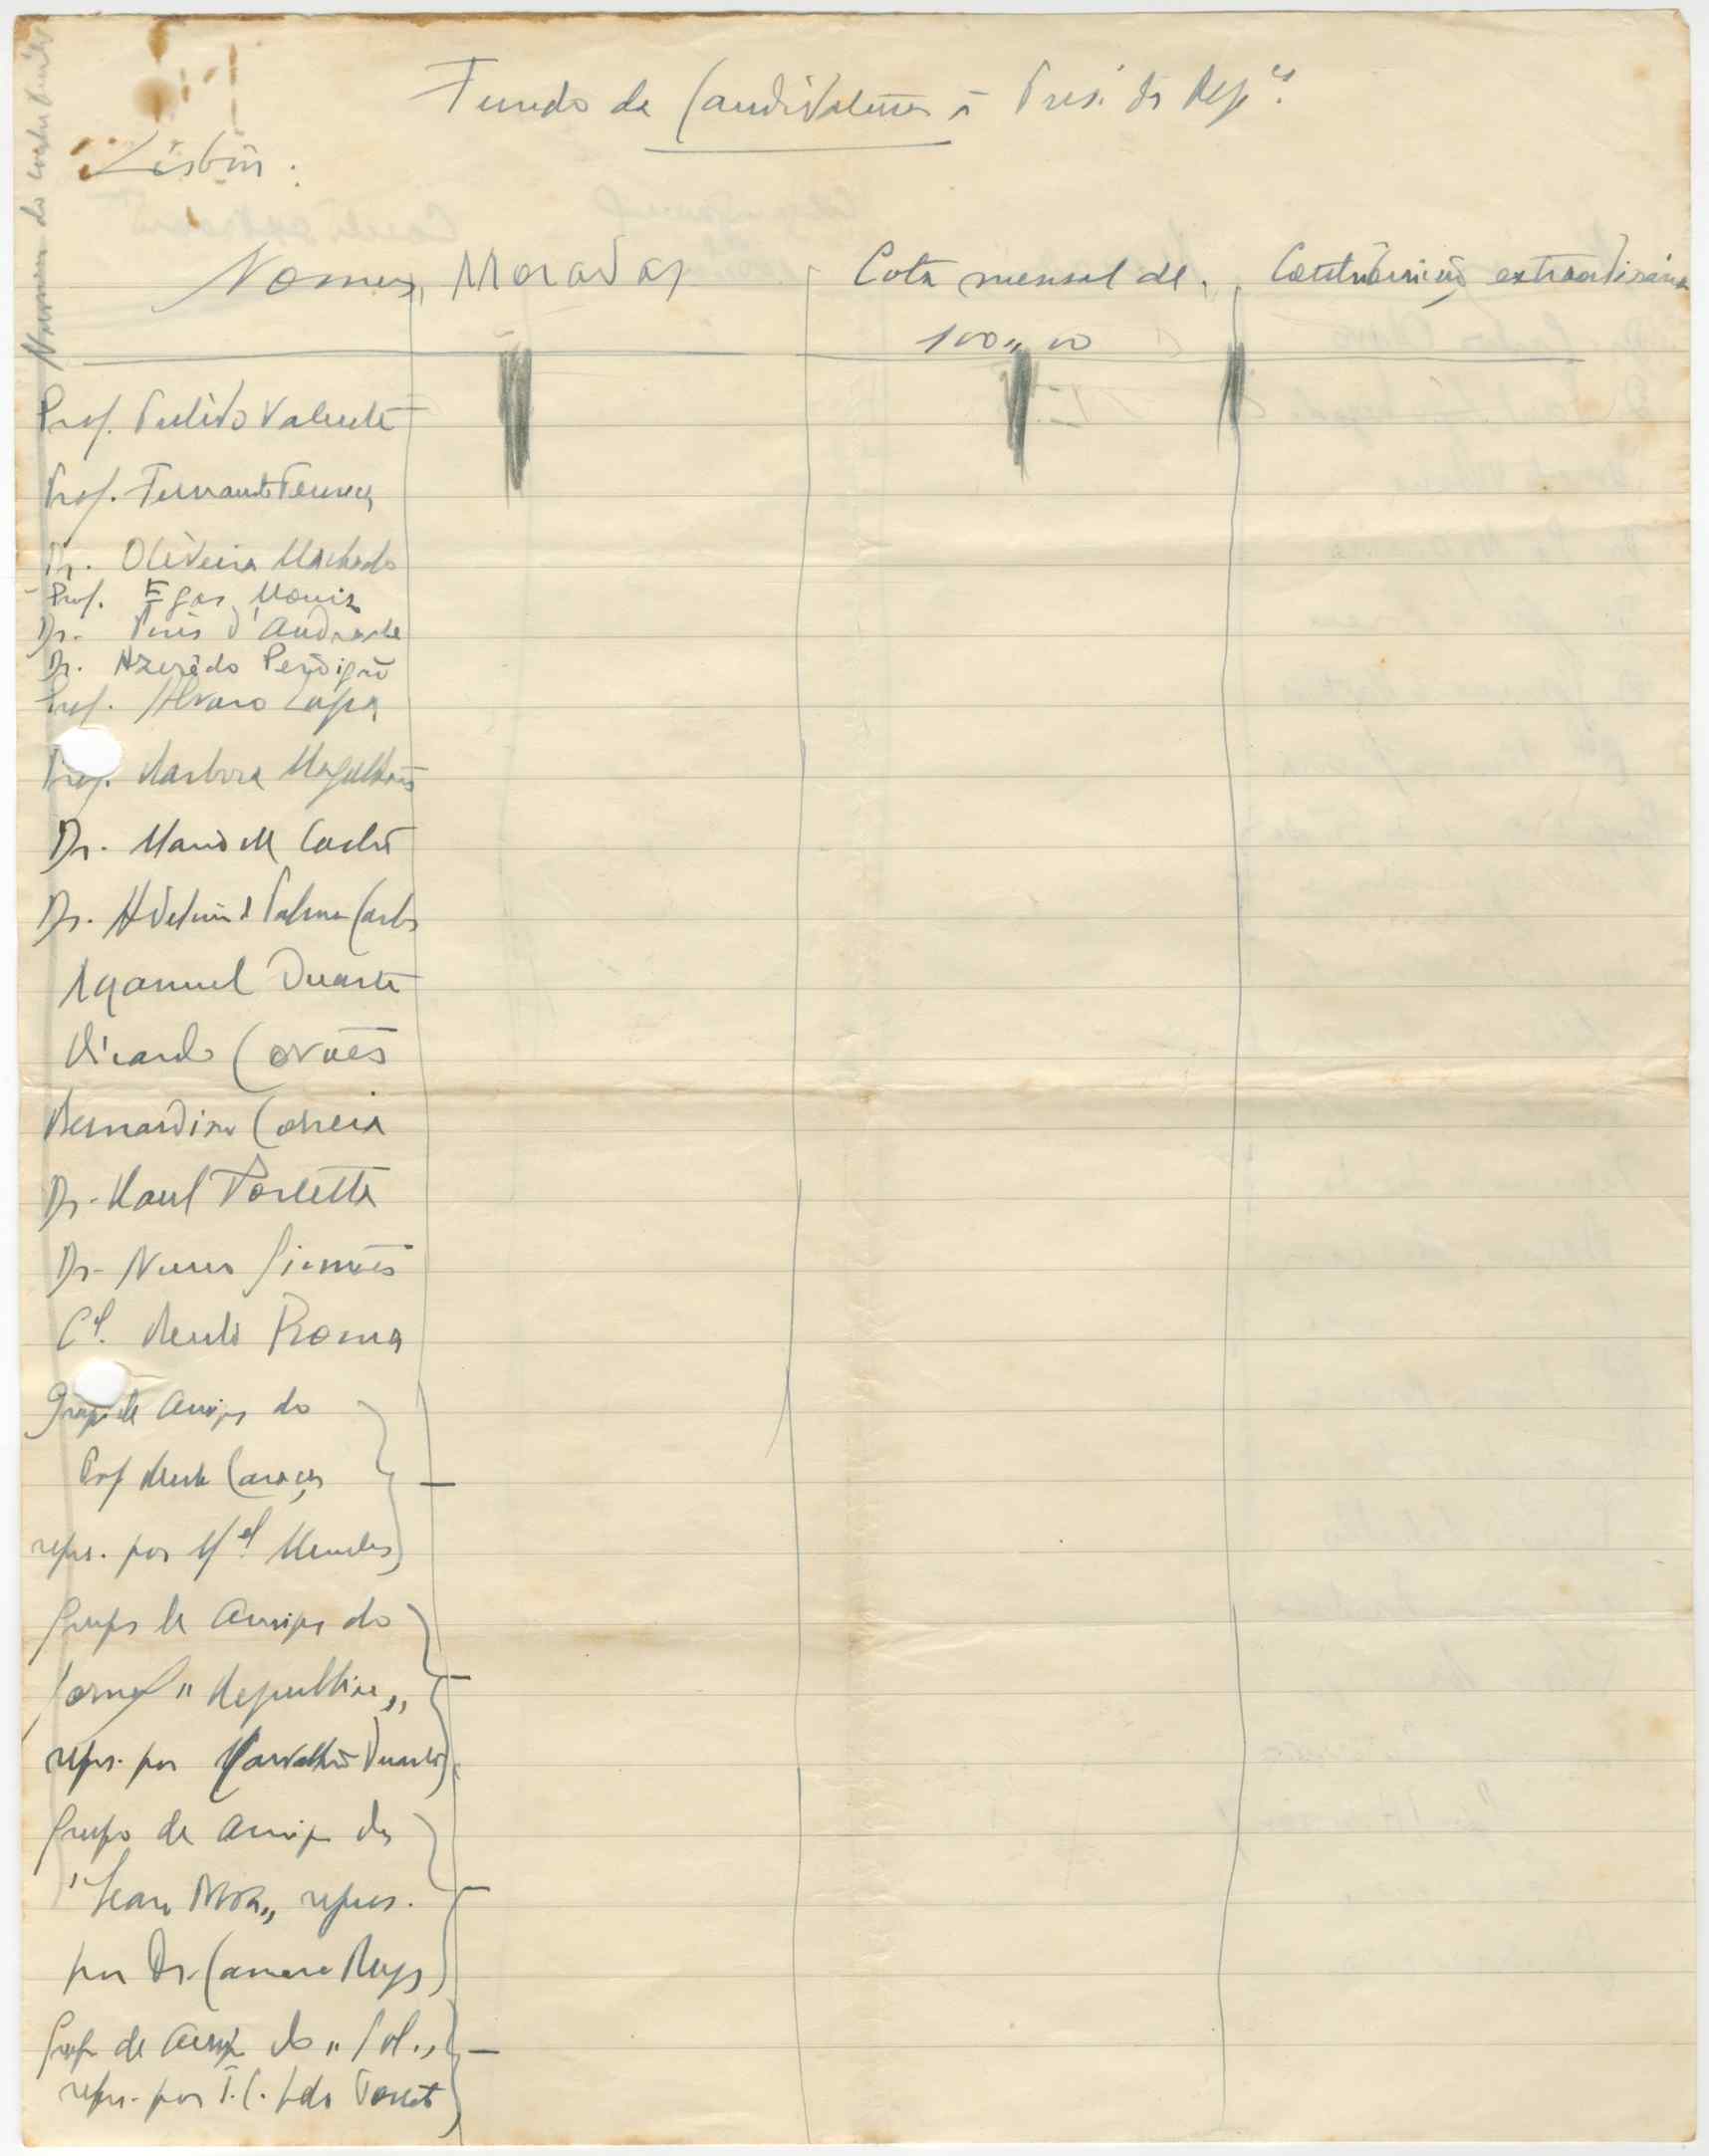 Fundo da Candidatura à Pres. da Rep.ca
Lisboa:
Nomes Moradas Cota mensal de Contribuição extraordinária
100,,00
Prof. Pulido Valente
Prof. Fernando Fonseca
Dr. Oliveira Machado
Prof. Egas Moniz
Dr. Pires d'Andrade
Dr. Azerêdo Perdigão
Prof. Alvaro Lapa
Prof. Barbosa Magalhães
Dr. Mario de Castro
Dr. Adelino d Palma Carlos
Manuel Duarte
Ricardo Covões
Bernardino Correia
Dr. Raul
Dr. Nuno Simões
C.el Bento Roma
Grupo de Amigos do
Prof Bento Caraça
repr. por M.el Mendes
Grupo de Amigos do
Jornal "Republica"
repr. por Carvalhão Duarte
Grupo de Amigos da
"Seara Nova" repres.
por Dr. Camara Reys
Grupo de Amigos do "Sol"
repr. por
Numero do